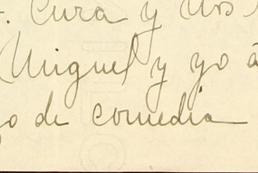 . Cura y nos
Miguel y yo á
go de comedia